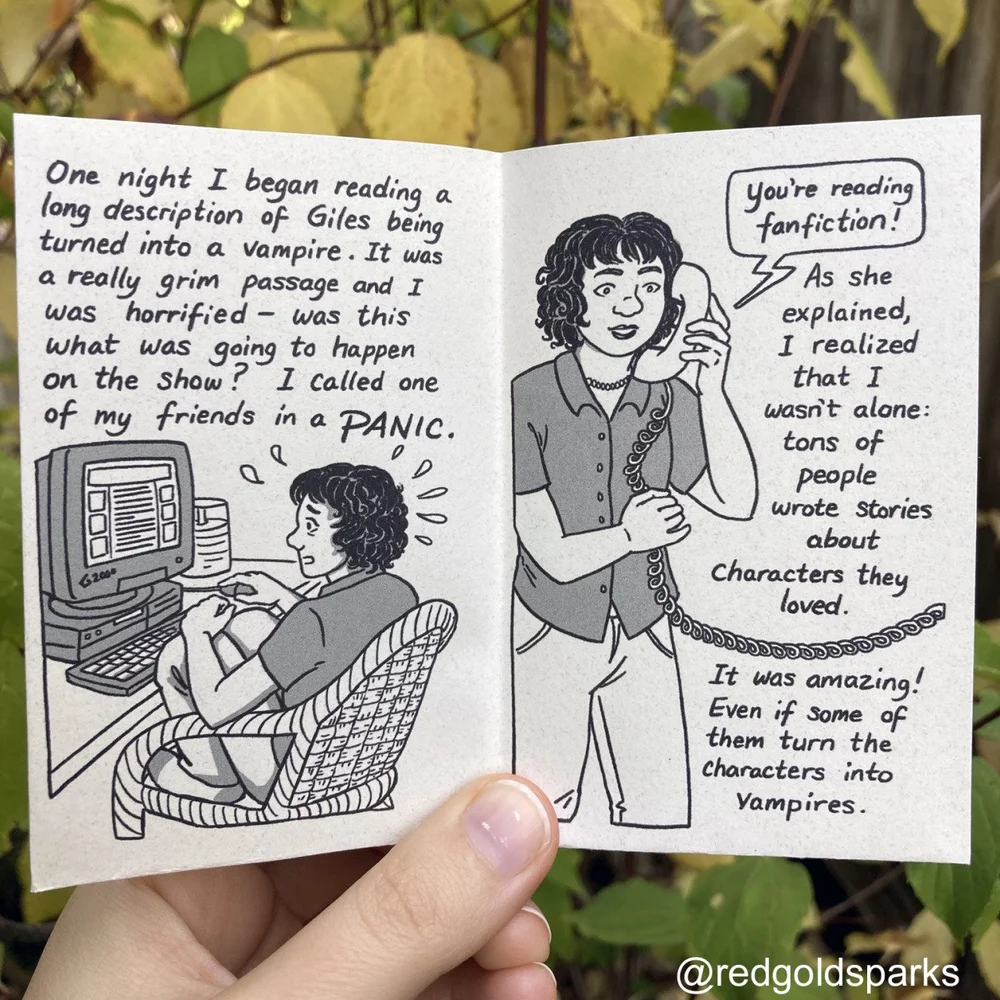 One night I began reading a
long description of Giles being
turned into a vampire. It was
a really grim passage and I
was horrified – was this
what was going to happen
on the show? I called one
of my friends in a PANIC.
G2000
You're reading
fanfiction!
As she
explained,
I realized
that I
wasn't alone:
tons of
people
wrote stories
about
Characters they
loved.
It was amazing!
Even if some of
them turn the
characters into
Vampires.
@redgoldsparks